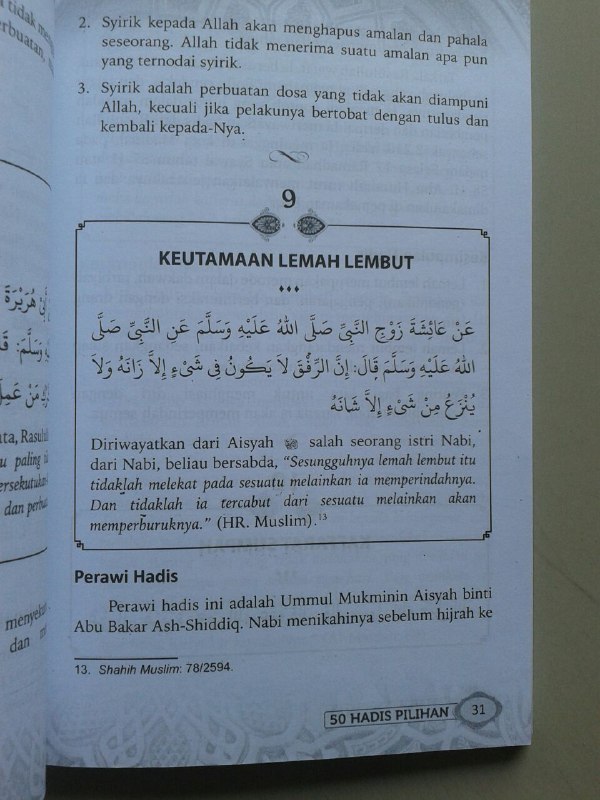 tidak men
erbuatan,
هُرَيْرَةَ
وَسَلَّمَ: قَا
مَنْ عَمِلَ
ata, Rasulull
u paling
ersekutukan
dan perbua
menyekut
dan
2. Syirik kepada Allah akan menghapus amalan dan pahala
seseorang. Allah tidak menerima suatu amalan apa pun
yang ternodai syirik.
3. Syirik adalah perbuatan dosa yang tidak akan diampuni
Allah, kecuali jika pelakunya bertobat dengan tulus dan
kembali kepada-Nya.
9
KEUTAMAAN LEMAH LEMBUT
عَنْ عَائِشَةَ زَوْجِ النَّبِيِّ صَلَّى اللهُ عَلَيْهِ وَسَلَّمَ عَنِ النَّبِيِّ صَلَّى
اللهُ عَلَيْهِ وَسَلَّمَ قَالَ: إِنَّ الرِّفْقَ لاَ يَكُونُ فِي شَيْءٍ إِلاَّ زَانَهُ وَلاَ
يُنْزَعُ مِنْ شَيْءٍ إِلاَّ شَانَهُ
Diriwayatkan dari Aisyah salah seorang istri Nabi,
dari Nabi, beliau bersabda, “Sesungguhnya lemah lembut itu
tidaklah melekat pada sesuatu melainkan ia memperindahnya.
Dan tidaklah ia tercabut dari sesuatu melainkan akan
memperburuknya.” (HR. Muslim).13
Perawi Hadis
Perawi hadis ini adalah Ummul Mukminin Aisyah binti
Abu Bakar Ash-Shiddiq. Nabi menikahinya sebelum hijrah ke
13. Shahih Muslim: 78/2594.
50 HADIS PILIHAN 31